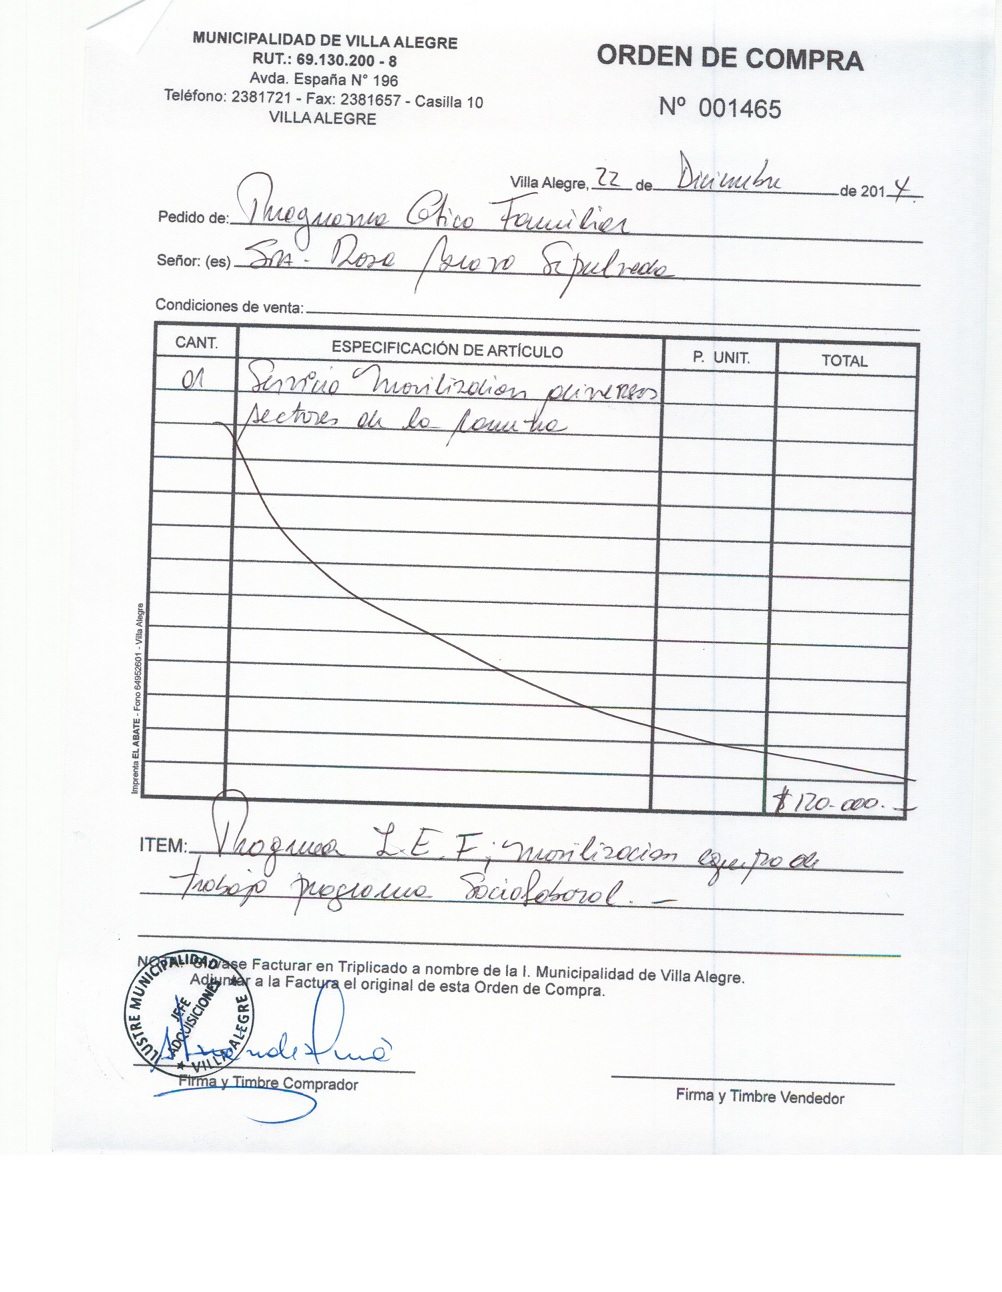 MUNICIPALIDAD DE VILLA ALEGRE
RUT.: 69.130.200 - 8
Avda. España N° 196
Teléfono: 2381721 - Fax: 2381657 - Casilla 10
VILLA ALEGRE
ORDEN DE COMPRA
Nº 001465
Villa Alegre, 22 de Diciembre de 2014.
Pedido de: Programa Etico Familiar
Señor: (es) Sra. Rosa Bravo Sepulveda
Condiciones de venta:
CANT. ESPECIFICACIÓN DE ARTÍCULO P. UNIT. TOTAL
01 Servicio Movilizacion diversos
sectores de la Comuna
$ 120.000.-
Imprenta EL ABATE - Fono 64952601 - Villa Alegre
ITEM: Programa I.E.F; movilizacion equipo de
trabajo programa Sociolaboral. -
NOTA: Sírvase Facturar en Triplicado a nombre de la I. Municipalidad de Villa Alegre.
Adjuntar a la Factura el original de esta Orden de Compra.
ILUSTRE MUNICIPALIDAD
JEFE
ADQUISICIONES
★ VILLA ALEGRE
Firma y Timbre Comprador
Firma y Timbre Vendedor